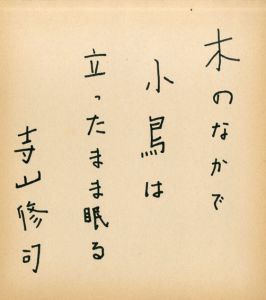 木のなかで
小鳥は
立ったまま眠る
寺山修司